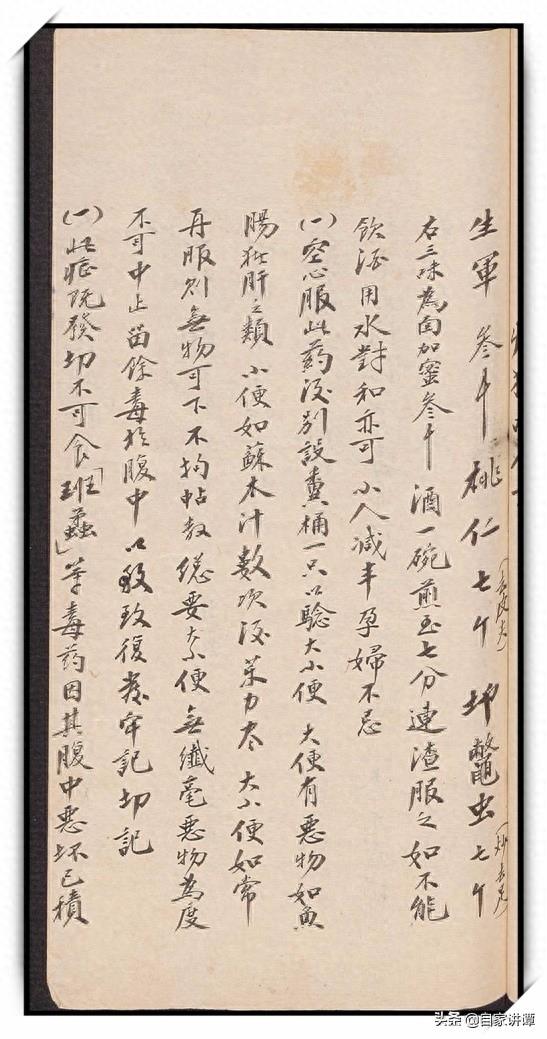 生軍 叁个 桃仁 七个（去皮尖）地鼈虫 七个（炒去足）
右三味為面加蜜叁个 酒一碗煎至七分連渣服之如不能
飲酒用水對和亦可 小人减半孕婦不忌
(一)空心服此药後別設糞桶一只以騐大小便 大便有惡物如魚
腸猪肝之類 小便如蘇木汁數次後药力尽 大小便如常
再服則無物可下不拘帖数 總要大小便無纖毫惡物為度
不可中止留餘毒於腹中以致復發牢記切記
(一)此症既發切不可食「班蝥」等毒药因其腹中惡坏已積
头条 @自家讲谭